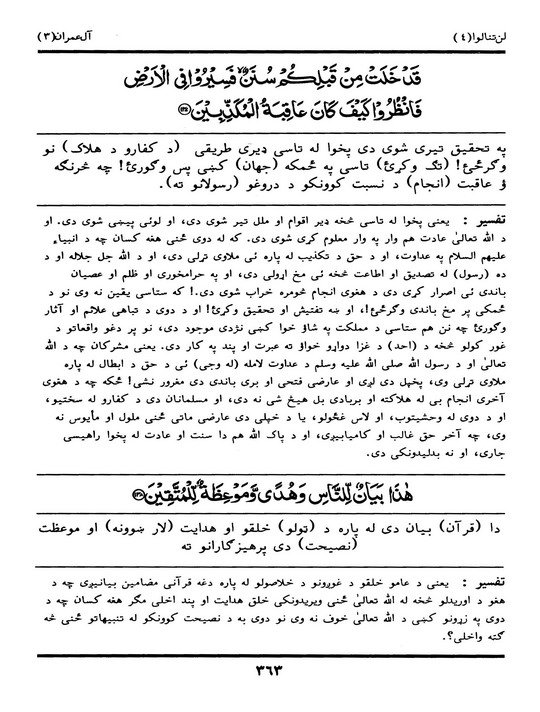 لن تنالوا (٤)
آل عمران (٣)
قَدْ خَلَتْ مِنْ قَبْلِكُمْ سُنَنٌ فَسِيرُوا فِي الْأَرْضِ
فَانْظُرُوا كَيْفَ كَانَ عَاقِبَةُ الْمُكَذِّبِينَ ﴿١٣٧﴾
په تحقیق تیری شوی دی پخوا له تاسی ډیری طریقی (د کفارو د هلاک) نو
وګرځئ! (تګ وکړئ) تاسی په ځمکه (جهان) کښی پس وګورئ! چه څرنګه
ؤ عاقبت (انجام) د نسبت کوونکو د دروغو (رسولانو ته).
تفسیر : یعنی پخوا له تاسی څخه ډیر اقوام او ملل تیر شوی دی، او لوئی پیښی شوی دی. او
د الله تعالیٰ عادت هم وار په وار معلوم کړی شوی دی. که له دوی ځنی هغه کسان چه د انبیاء
علیهم السلام په عداوت، او د حق د تکذیب له پاره ئی ملاوی تړلی دی، او د الله جل جلاله او د
ده (رسول) له تصدیق او اطاعت څخه ئی مخ اړولی دی، او په حرامخوری او ظلم او عصیان
باندی ئی اصرار کړی دی د هغوی انجام څومره خراب شوی دی.! که ستاسی یقین نه وی نو د
ځمکی پر مخ باندی وګرځئ!، او ښه تفتیش او تحقیق وکړئ! او د دوی د تباهی علائم او آثار
وګورئ چه نن هم ستاسی د مملکت په شاؤ خوا کښی نژدی موجود دی، نو پر دغو واقعاتو د
غور کولو څخه د (احد) د غزا دواړو خواؤ ته عبرت او پند په کار دی. یعنی مشرکان چه د الله
تعالیٰ او د رسول الله صلی الله علیه وسلم د عداوت لامله (له وجی) ئی د حق د ابطال له پاره
ملاوی تړلی وی، پخپل دی لږی او عارضی فتحی او بری باندی دی مغرور نشی! ځکه چه د هغوی
آخری انجام بی له هلاکته او بربادی بل هیڅ شی نه دی، او مسلمانان دی د کفارو له سختیو،
او د دوی له وحشیتوب، او لاس غځولو، یا د خپلی دی عارضی ماتی ځنی ملول او مأیوس نه
وی، چه آخر حق غالب او کامیابیږی، او د پاک الله هم دا سنت او عادت له پخوا راهیسی
جاری، او نه بدلیدونکی دی.
هٰذَا بَيَانٌ لِلنَّاسِ وَهُدًى وَمَوْعِظَةٌ لِلْمُتَّقِينَ ﴿١٣٨﴾
دا (قرآن) بیان دی له پاره د (ټولو) خلقو او هدایت (لار ښوونه) او موعظت
(نصیحت) دی پرهیزګارانو ته
تفسیر : یعنی د عامو خلقو د غوږونو د خلاصولو له پاره دغه قرآنی مضامین بیانیږی چه د
هغو د اوریدلو څخه له الله تعالیٰ ځنی ویریدونکی خلق هدایت او پند اخلی مګر هغه کسان چه د
دوی په زړونو کښی د الله تعالیٰ خوف نه وی نو دوی به د نصیحت کوونکو له تنبیهاتو ځنی څه
ګټه واخلی؟.
٣٦٣